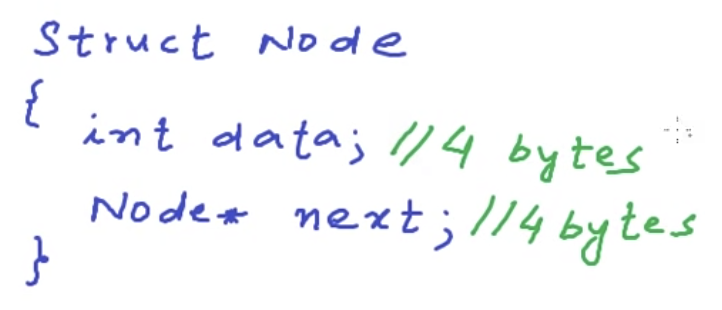 Struct Node
{
int data; //4 bytes
Node* next; //4 bytes
}